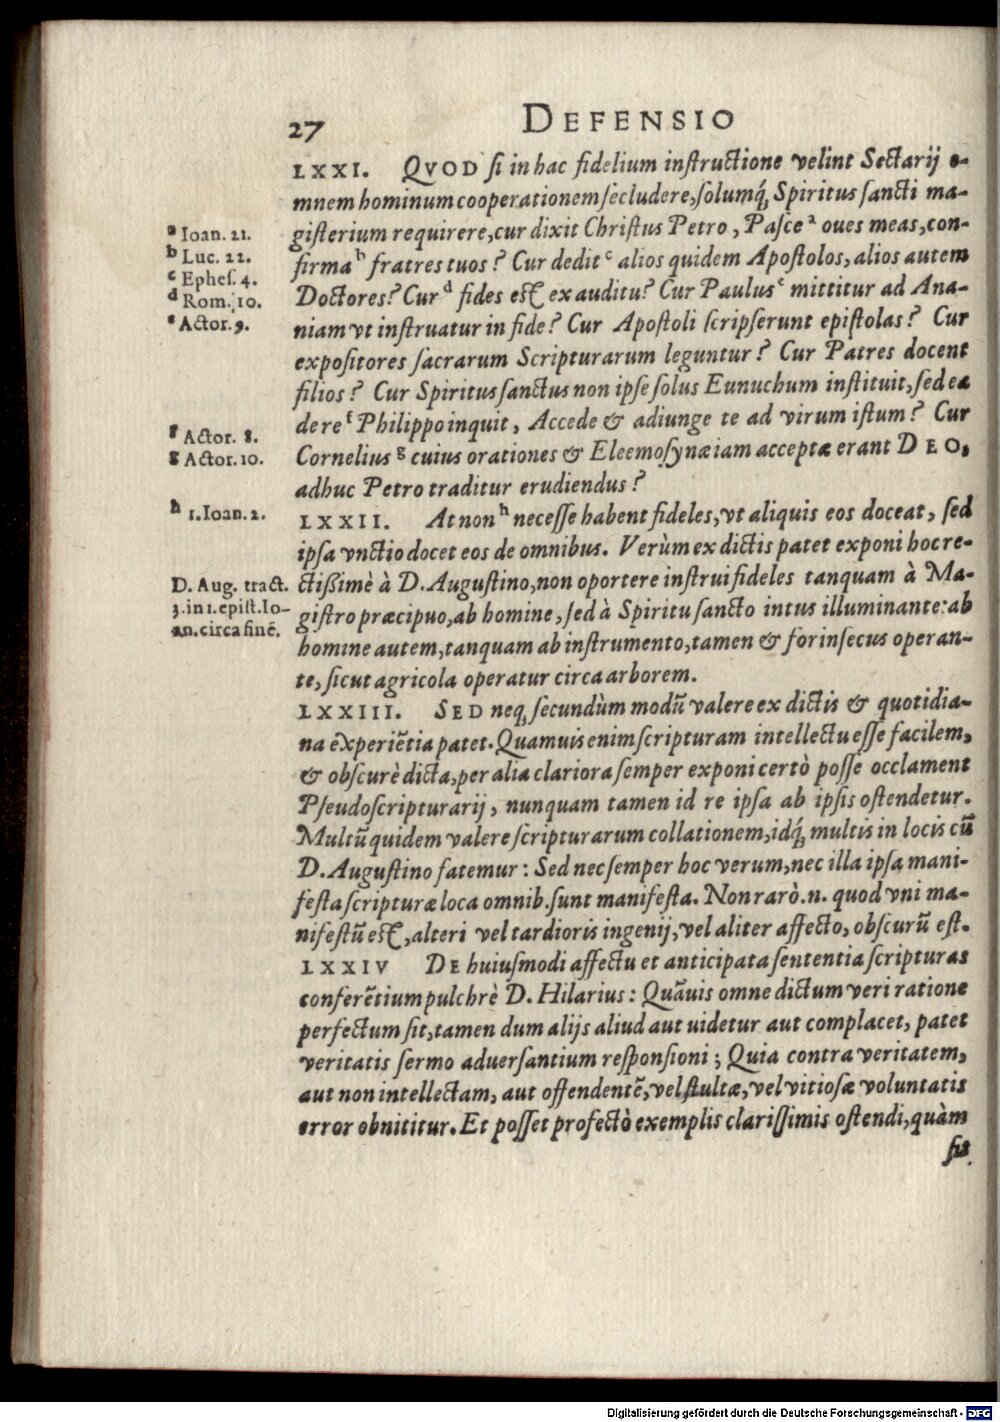 27 DEFENSIO
LXXI. QVOD si in hac fidelium instructione velint Sectarij o-
mnem hominum cooperationem secludere, solumq́; Spiritus sancti ma-
gisterium requirere, cur dixit Christus Petro, Pasce ᵃ oues meas, con-
firma ᵇ fratres tuos? Cur dedit ᶜ alios quidem Apostolos, alios autem
Doctores? Cur ᵈ fides est ex auditu? Cur Paulus ᵉ mittitur ad Ana-
niam vt instruatur in fide? Cur Apostoli scripserunt epistolas? Cur
expositores sacrarum Scripturarum leguntur? Cur Patres docent
filios? Cur Spiritus sanctus non ipse solus Eunuchum instituit, sed ea
de re ᶠ Philippo inquit, Accede & adiunge te ad virum istum? Cur
Cornelius ᵍ cuius orationes & Eleemosynæ iam acceptæ erant DEO,
adhuc Petro traditur erudiendus?
LXXII. At non ʰ necesse habent fideles, vt aliquis eos doceat, sed
ipsa vnctio docet eos de omnibus. Verùm ex dictis patet exponi hoc re-
ctißimè à D. Augustino, non oportere instrui fideles tanquam à Ma-
gistro præcipuo, ab homine, sed à Spiritu sancto intus illuminante: ab
homine autem, tanquam ab instrumento, tamen & forinsecus operan-
te, sicut agricola operatur circa arborem.
LXXIII. SED neq; secundùm modũ valere ex dictis & quotidia-
na experiẽtia patet. Quamuis enim scripturam intellectu esse facilem,
& obscurè dicta, per alia clariora semper exponi certò posse occlament
Pseudoscripturarij, nunquam tamen id re ipsa ab ipsis ostendetur.
Multũ quidem valere scripturarum collationem, idq́; multis in locis cũ
D. Augustino fatemur: Sed nec semper hoc verum, nec illa ipsa mani-
festa scripturæ loca omnib. sunt manifesta. Non rarò .n. quod vni ma-
nifestũ est, alteri vel tardioris ingenij, vel aliter affecto, obscurũ est.
LXXIV DE huiusmodi affectu et anticipata sententia scripturas
conferẽtium pulchrè D. Hilarius: Quãuis omne dictum veri ratione
perfectum sit, tamen dum alijs aliud aut uidetur aut complacet, patet
veritatis sermo aduersantium responsioni; Quia contra veritatem,
aut non intellectam, aut offendentẽ, vel stultæ, vel vitiosæ voluntatis
error obnititur. Et posset profectò exemplis clarissimis ostendi, quàm
sit
ᵃ Ioan. 21.
ᵇ Luc. 22.
ᶜ Ephes. 4.
ᵈ Rom. 10.
ᵉ Actor. 9.
ᶠ Actor. 8.
ᵍ Actor. 10.
ʰ 1. Ioan. 2.
D. Aug. tract.
3. in 1. epist. Io-
an. circa finẽ.
Digitalisierung gefördert durch die Deutsche Forschungsgemeinschaft - DFG